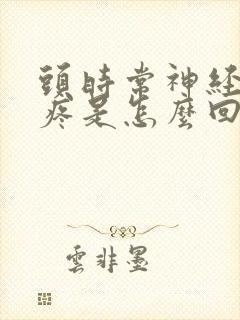 頭時常神経
疼是怎麼回
雲非墨